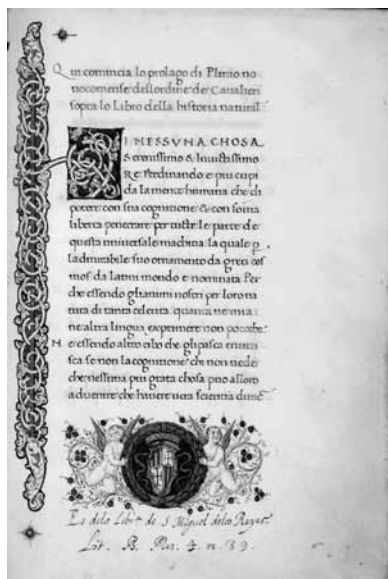 Qui comincia lo prolago di Plinio no
uocomense dellordine de Caualieri
sopra lo Libro della historia natural
DI NESSUNA CHOSA
Serenissimo & Inuictissimo
Re Ferdinando e piu cupi
da la mente humana che di
potere con sua cognitione & con somma
liberta penetrare per tutte le parte de
questa uniuersale machina la quale p
ladmirabile suo ornamento da greci cos
mos da latini mondo e nominata Per
che essendo gli animi nostri per loro na
tura di tanta celerita quanta ne mia
ne altra lingua exprimere non potrebe
N e essendo altro cibo che gli pasca e nutri
sca se non la cognitione che non uede
che nessuna piu grata chosa puo alloro
aduenire che hauere uera scientia
Es dela Libra de S. Miguel delos Reyes
Lit. B. Plu. 4 n. 39.